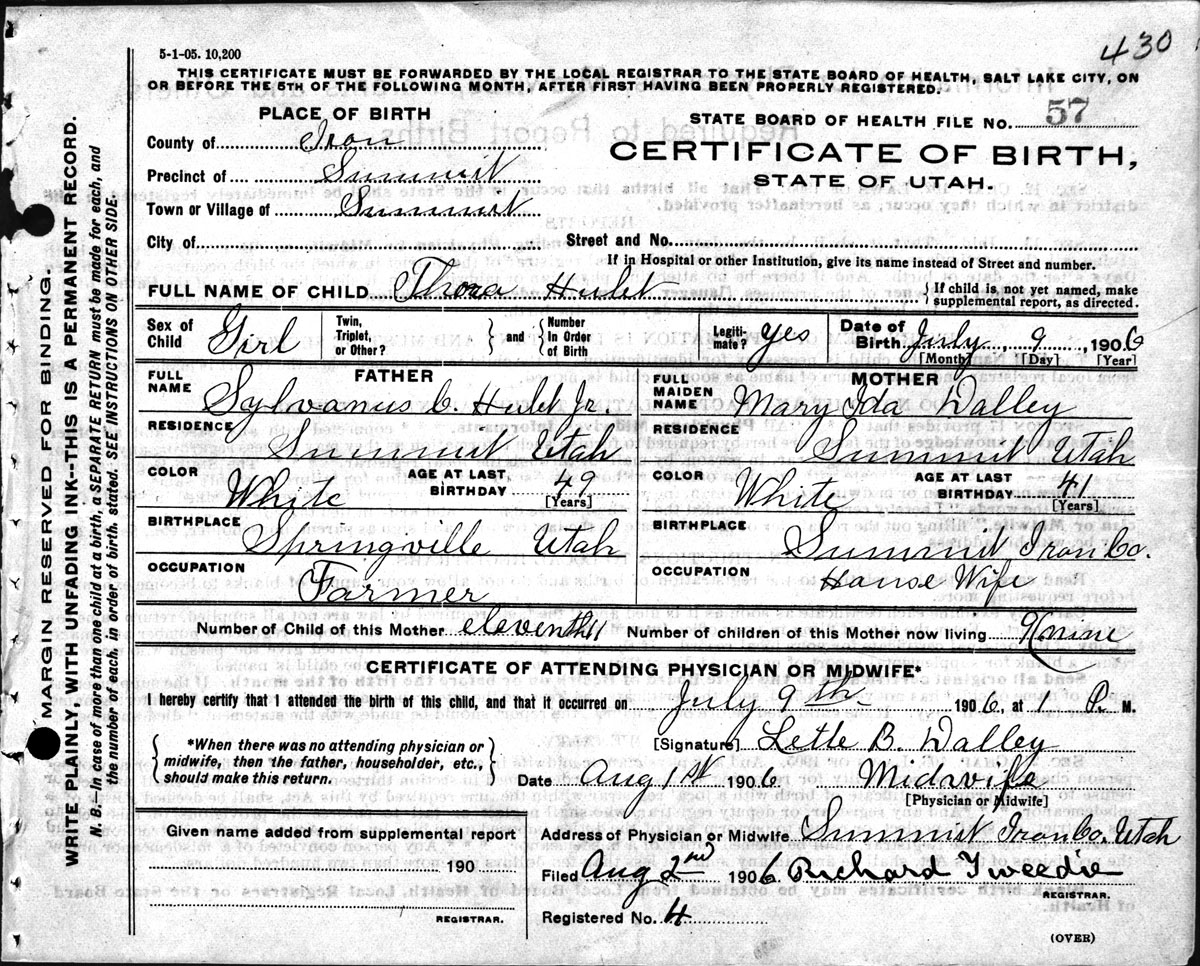 430
5-1-05. 10,200
THIS CERTIFICATE MUST BE FORWARDED BY THE LOCAL REGISTRAR TO THE STATE BOARD OF HEALTH, SALT LAKE CITY, ON
OR BEFORE THE 5TH OF THE FOLLOWING MONTH, AFTER FIRST HAVING BEEN PROPERLY REGISTERED.
PLACE OF BIRTH
STATE BOARD OF HEALTH FILE NO. 57
County of Iron
CERTIFICATE OF BIRTH,
Precinct of Summit
STATE OF UTAH.
Town or Village of Summit
City of
Street and No.
If in Hospital or other Institution, give its name instead of Street and number.
FULL NAME OF CHILD Thora Hulet
If child is not yet named, make
supplemental report, as directed.
Sex of Child Girl
Twin, Triplet, or Other?
and
Number In Order of Birth
Legitimate? yes
Date of Birth July 9 1906
[Month] [Day] [Year]
FATHER
FULL NAME Sylvanus C. Hulet Jr.
RESIDENCE Summit Utah
COLOR White
AGE AT LAST BIRTHDAY 49
[Years]
BIRTHPLACE Springville Utah
OCCUPATION Farmer
MOTHER
FULL MAIDEN NAME Mary Ida Dalley
RESIDENCE Summit Utah
COLOR White
AGE AT LAST BIRTHDAY 41
[Years]
BIRTHPLACE Summit Iron Co.
OCCUPATION House Wife
Number of Child of this Mother eleventh 11
Number of children of this Mother now living 9 (nine
CERTIFICATE OF ATTENDING PHYSICIAN OR MIDWIFE*
I hereby certify that I attended the birth of this child, and that it occurred on July 9th 1906, at 1 P. M.
*When there was no attending physician or
midwife, then the father, householder, etc.,
should make this return.
[Signature] Lette B. Dalley
Date Aug 1st 1906 Midwife
[Physician or Midwife]
Given name added from supplemental report
190
REGISTRAR.
Address of Physician or Midwife Summit Iron Co. Utah
Filed Aug 2nd 1906. Richard Tweedie
REGISTRAR.
Registered No. 4
(OVER)
MARGIN RESERVED FOR BINDING.
WRITE PLAINLY, WITH UNFADING INK--THIS IS A PERMANENT RECORD.
N. B.--In case of more than one child at a birth, a SEPARATE RETURN must be made for each, and
the number of each, in order of birth, stated. SEE INSTRUCTIONS ON OTHER SIDE.